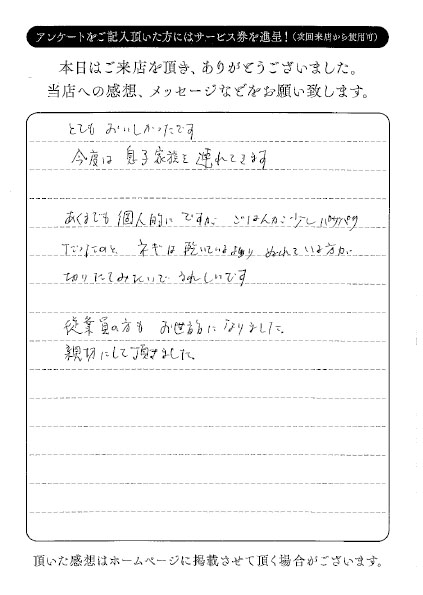 アンケートをご記入頂いた方にはサービス券を進呈！（次回来店から使用可）
本日はご来店を頂き、ありがとうございました。
当店への感想、メッセージなどをお願い致します。
とても おいしかったです
今度は 息子家族を連れてきます
あくまでも 個人的に ですが ごはんが少し パサパサ
だったのと ネギは 乾いているより ぬれている方が
切りたてみたいで うれしいです
従業員の方も お世話になりました。
親切にして頂きました。
頂いた感想はホームページに掲載させて頂く場合がございます。